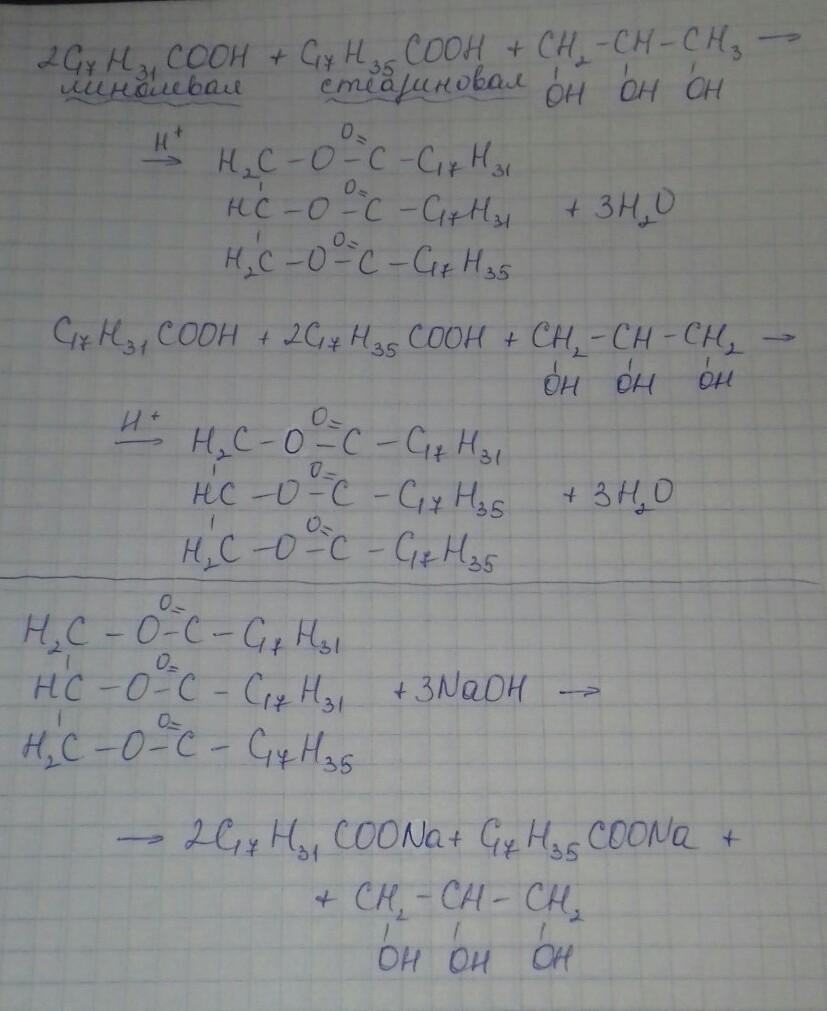 2C₁₇H₃₁COOH + C₁₇H₃₅COOH + CH₂-CH-CH₃ →
линолевая стеариновая OH OH OH
H⁺
→ H₂C-O-C-C₁₇H₃₁
O=
HC-O-C-C₁₇H₃₁ + 3H₂O
O=
H₂C-O-C-C₁₇H₃₅
O=
C₁₇H₃₁COOH + 2C₁₇H₃₅COOH + CH₂-CH-CH₂ →
OH OH OH
H⁺
→ H₂C-O-C-C₁₇H₃₁
O=
HC-O-C-C₁₇H₃₅ + 3H₂O
O=
H₂C-O-C-C₁₇H₃₅
O=
H₂C-O-C-C₁₇H₃₁
O=
HC-O-C-C₁₇H₃₁ + 3NaOH →
O=
H₂C-O-C-C₁₇H₃₅
→ 2C₁₇H₃₁COONa + C₁₇H₃₅COONa +
+ CH₂-CH-CH₂
OH OH OH